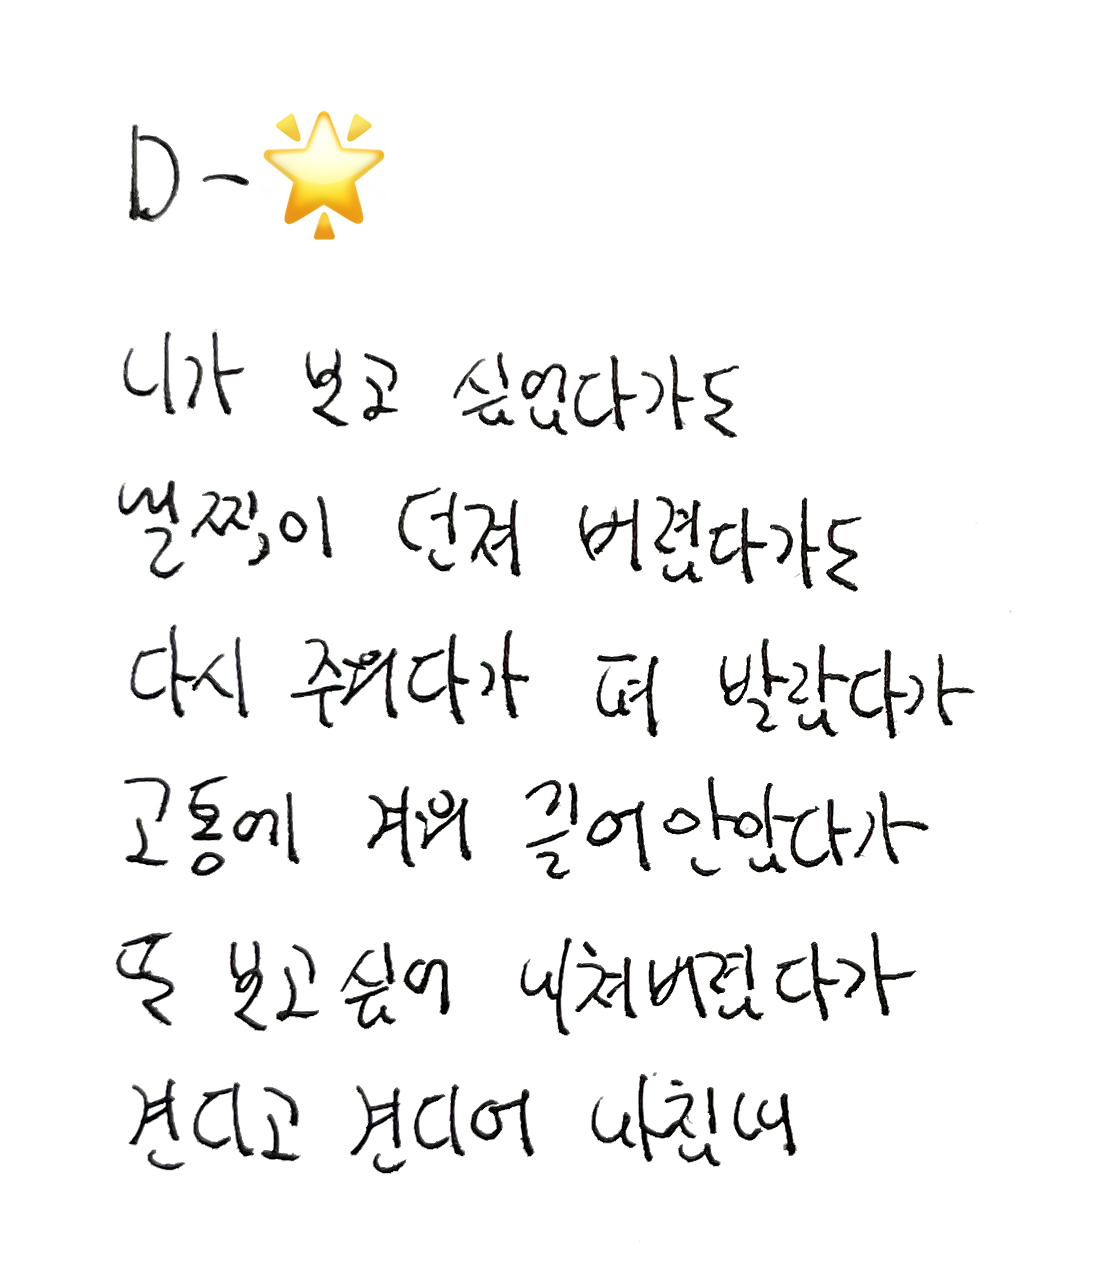 D-🌟
니가 보고 싶었다가도
널찍이 던져 버렸다가도
다시 주워다가 펴 발랐다가
고통에 겨워 끌어안았다가
또 보고싶어 내쳐버렸다가
견디고 견디어